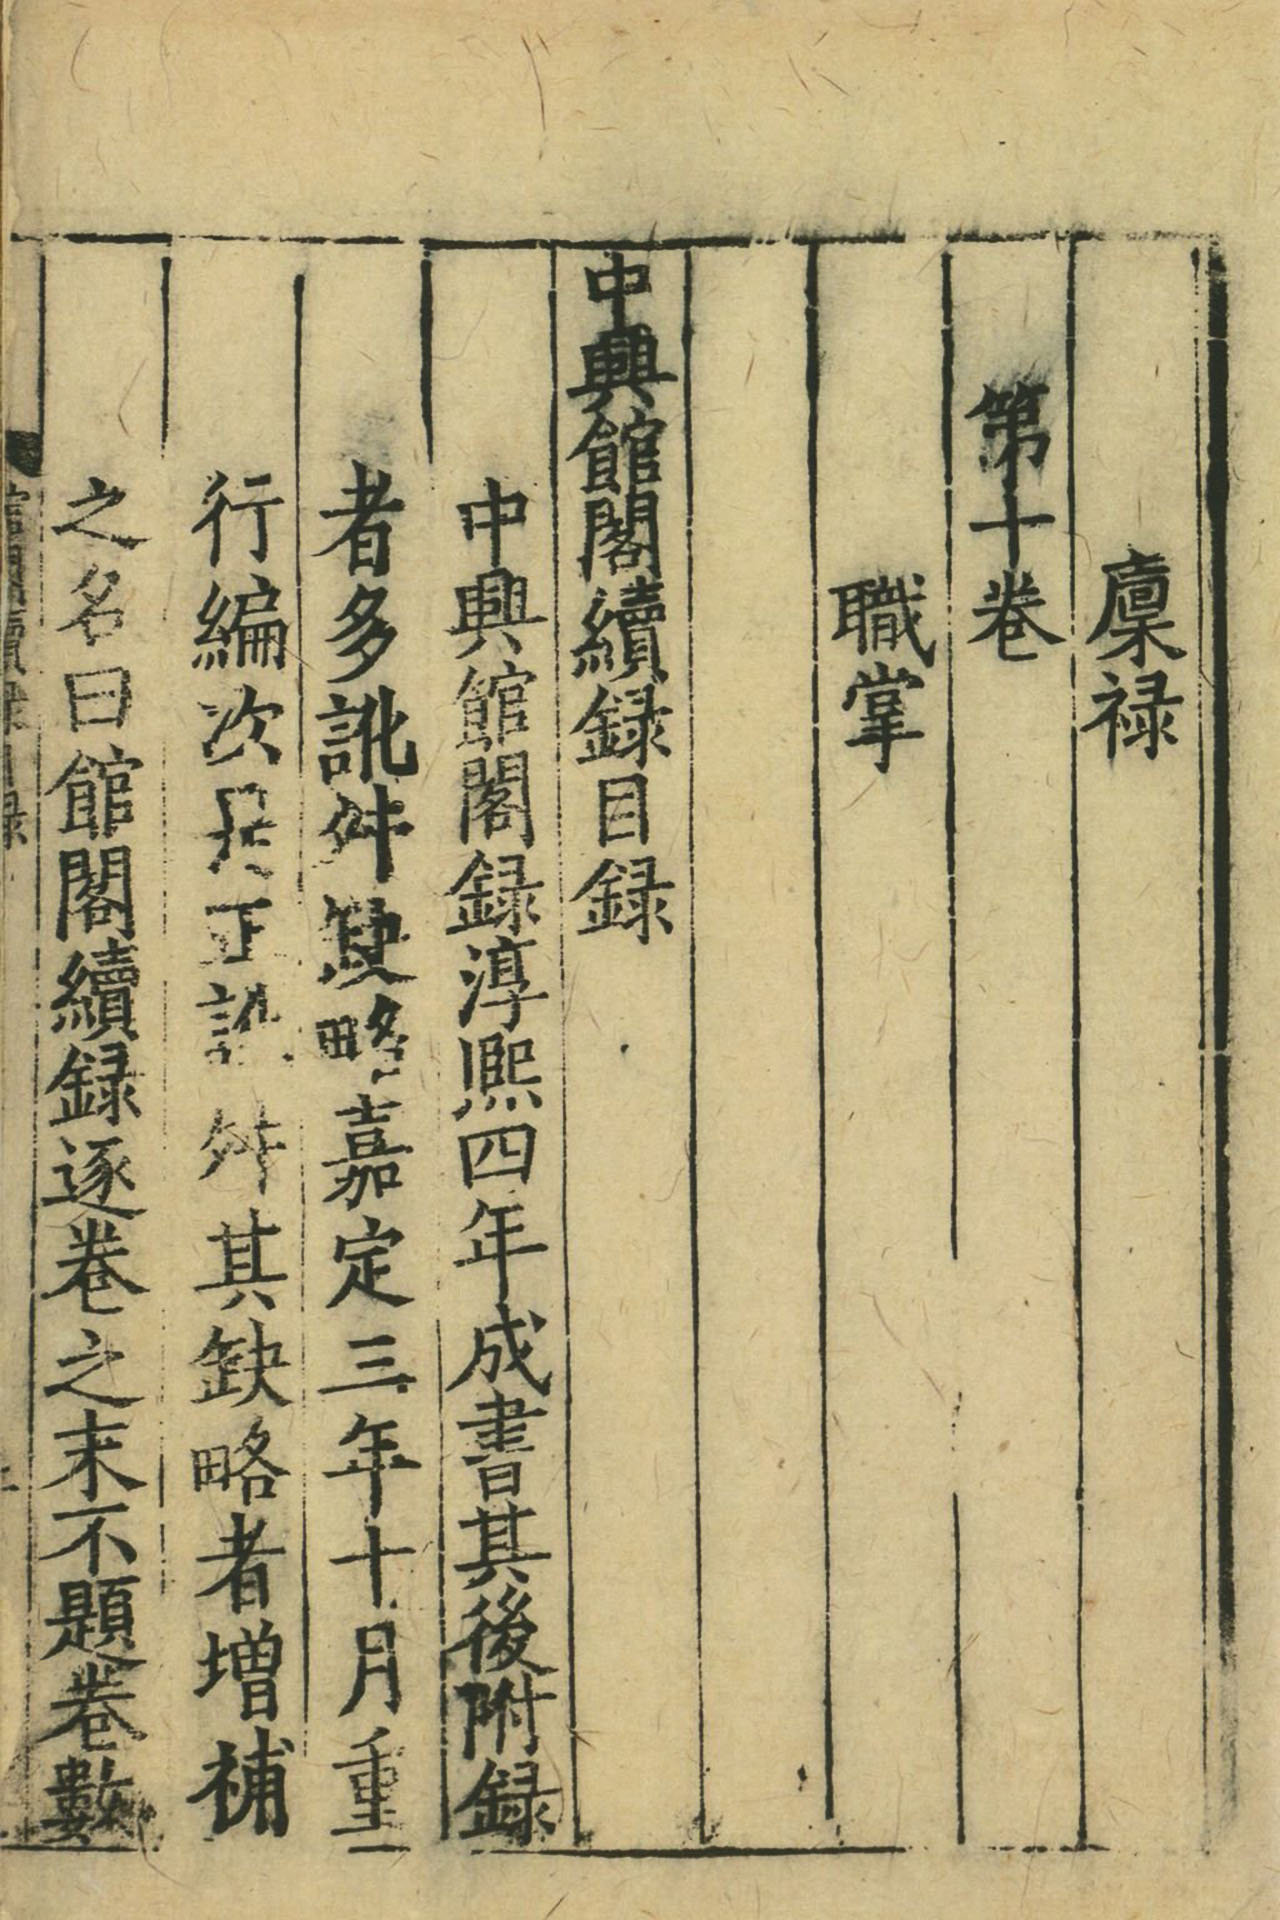 廪禄
第十卷
職掌
中興館閣續録目録
中興館閣録淳熙四年成書其後附録
者多訛舛缺略嘉定三年十月重
行編次是正訛舛其缺略者增補
之名曰館閣續録逐卷之末不題卷數